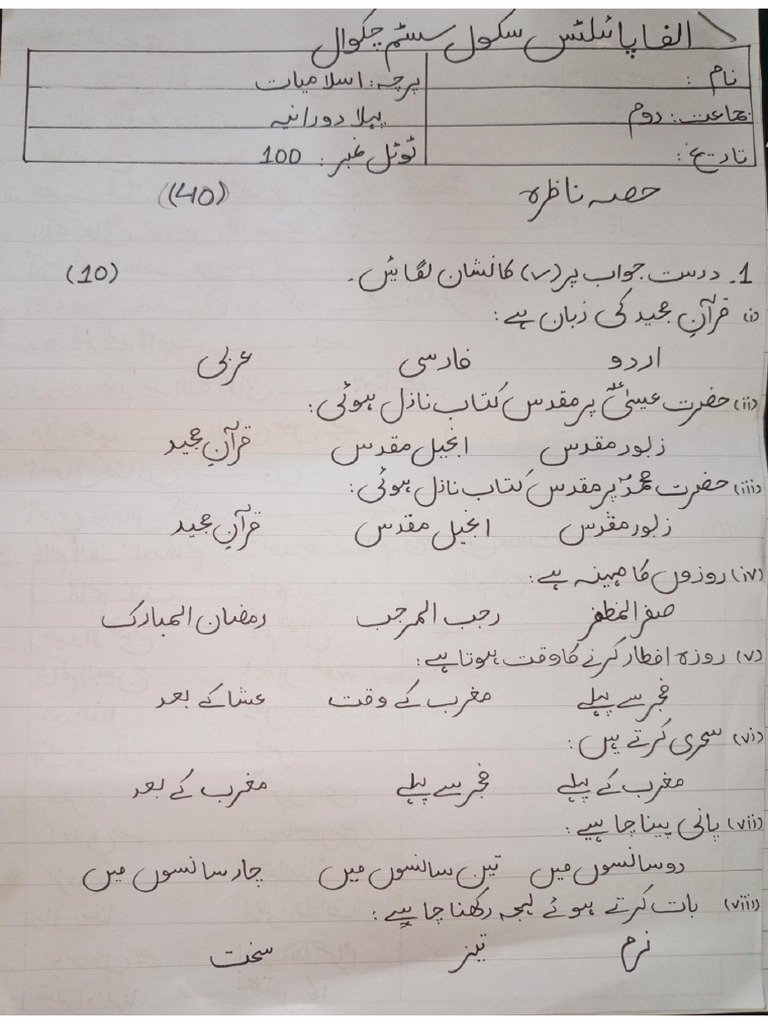 الفا پائلٹس سکول سسٹم چکوال
نام: پرچہ: اسلامیات
جماعت: دوم پہلا دورانیہ
تاریخ: ٹوٹل نمبر: 100
حصہ ناظرہ (40)
1۔ درست جواب پر (✓) کا نشان لگائیں۔ (10)
(i) قرآنِ مجید کی زبان ہے:
اردو فارسی عربی
(ii) حضرت عیسیٰؑ پر مقدس کتاب نازل ہوئی:
زبور مقدس انجیل مقدس قرآنِ مجید
(iii) حضرت محمدؐ پر مقدس کتاب نازل ہوئی:
زبور مقدس انجیل مقدس قرآنِ مجید
(iv) روزوں کا مہینہ ہے:
صفر المظفر رجب المرجب رمضان المبارک
(v) روزہ افطار کرنے کا وقت ہوتا ہے:
فجر سے پہلے مغرب کے وقت عشا کے بعد
(vi) سحری کرتے ہیں:
مغرب کے پہلے فجر سے پہلے مغرب کے بعد
(vii) پانی پینا چاہیے:
دو سانسوں میں تین سانسوں میں چار سانسوں میں
(viii) بات کرتے ہوئے لہجہ رکھنا چاہیے:
نرم تیز سخت